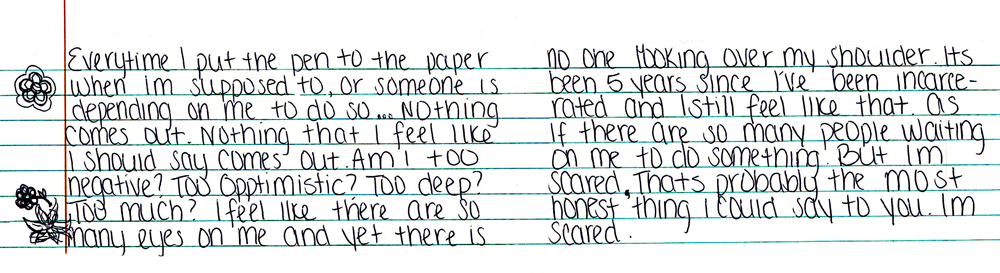 Everytime I put the pen to the paper
when im supposed to, or someone is
depending on me to do so... Nothing
comes out. Nothing that I feel like
I should say comes out. Am I too
negative? Too Opptimistic? Too deep?
Too much? I feel like there are so
many eyes on me and yet there is
no one looking over my shoulder. Its
been 5 years since I've been incarce-
rated and I still feel like that. as
If there are so many people waiting
on me to do something. But Im
scared. Thats probably the most
honest thing I could say to you. Im
scared.